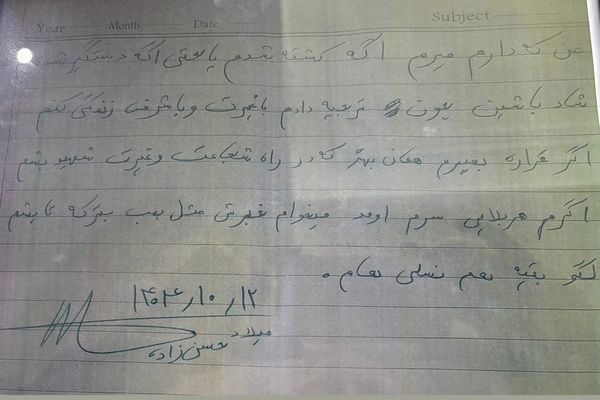 Year Month Date Subject
من که دارم میرم اگه کشته شدم یا حتی اگه دستگیر شدم
شاد باشین چون ترجیح دادم با غیرت و با شرف زندگی کنم
اگر قراره بمیرم همان بهتر که در راه شجاعت و غیرت شهید بشم
اگرم هر بلایی سرم اومد میخوام خبرش مثل بمب بترکه تا بشم
الگو بقیه هم نسلی هام.
۱۴۰۴/۱۰/۱۲
میلاد حسن زاده